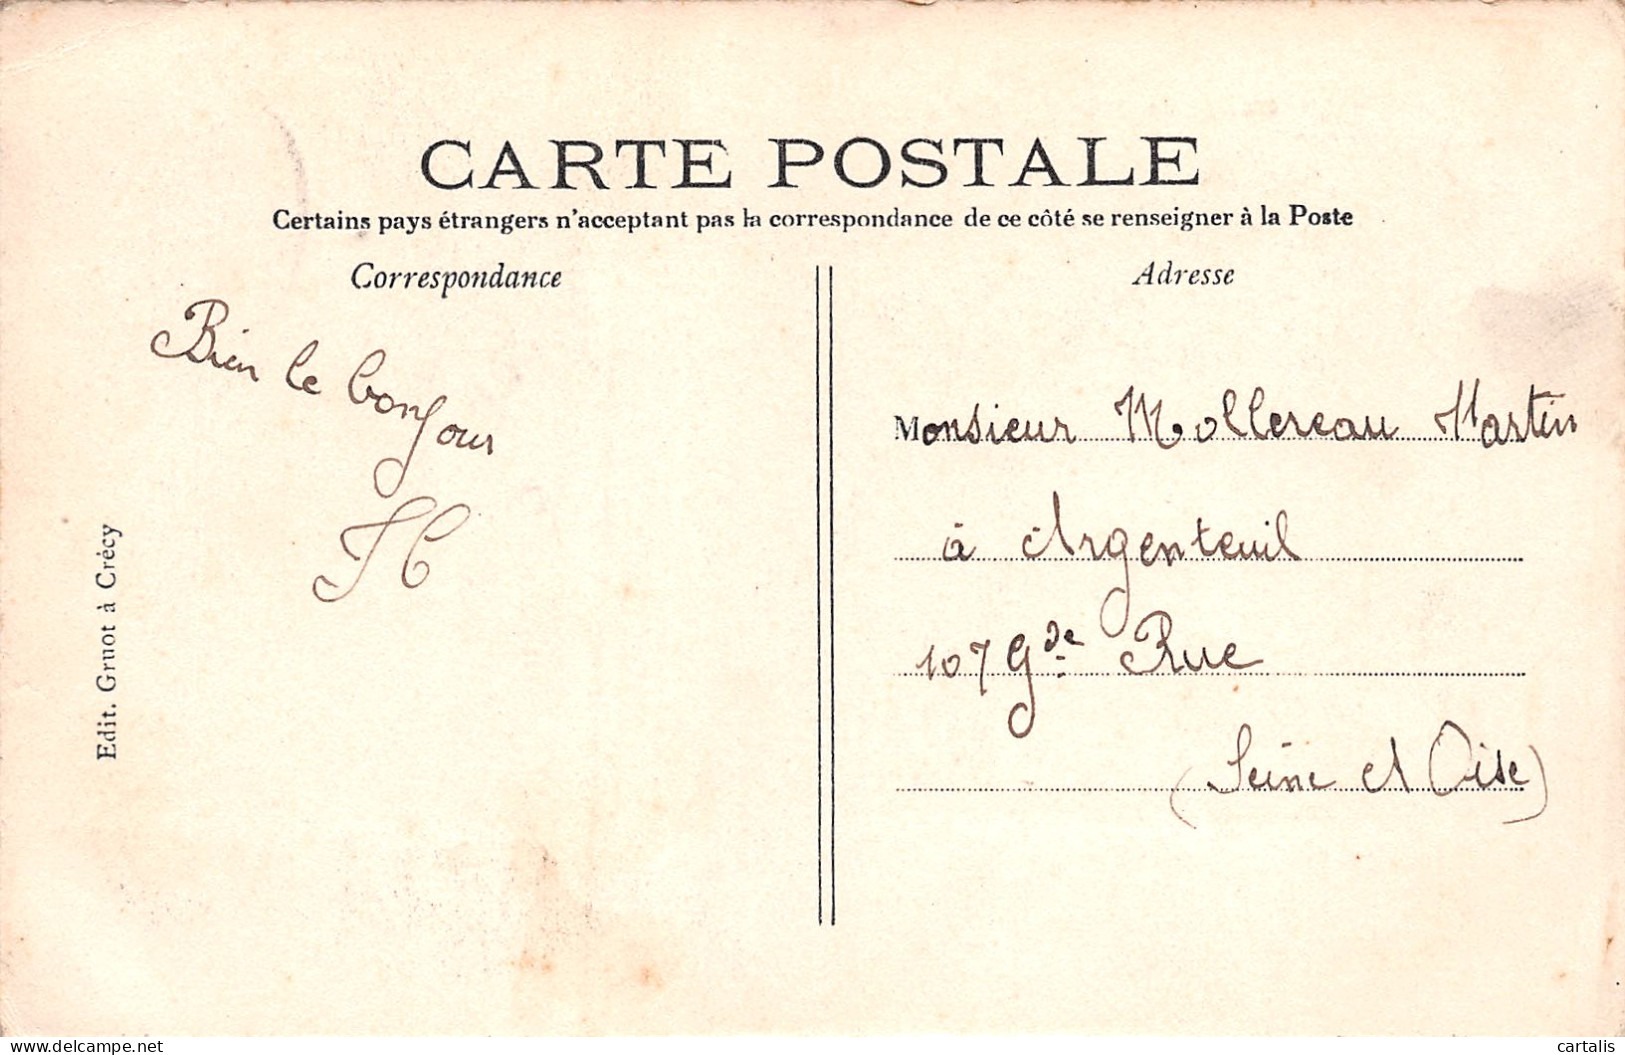 CARTE POSTALE
Certains pays étrangers n'acceptant pas la correspondance de ce côté se renseigner à la Poste
Correspondance
Bien le bonjour
Edit. Gruot à Crécy
Adresse
Monsieur Mollereau Martin
à Argenteuil
107 Gde Rue
(Seine et Oise)
delcampe.net
cartalis